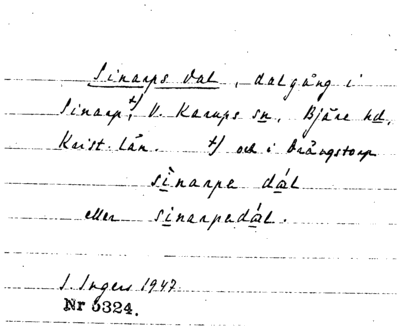 Sinarps dal, dalgång i
Sinarp,+) V. Karups sn, Bjäre hd,
Krist. län. +) och i Drängstorp
sìnarpa dál
eller sinarpadál.
I. Ingers 1947
Nr 5324.